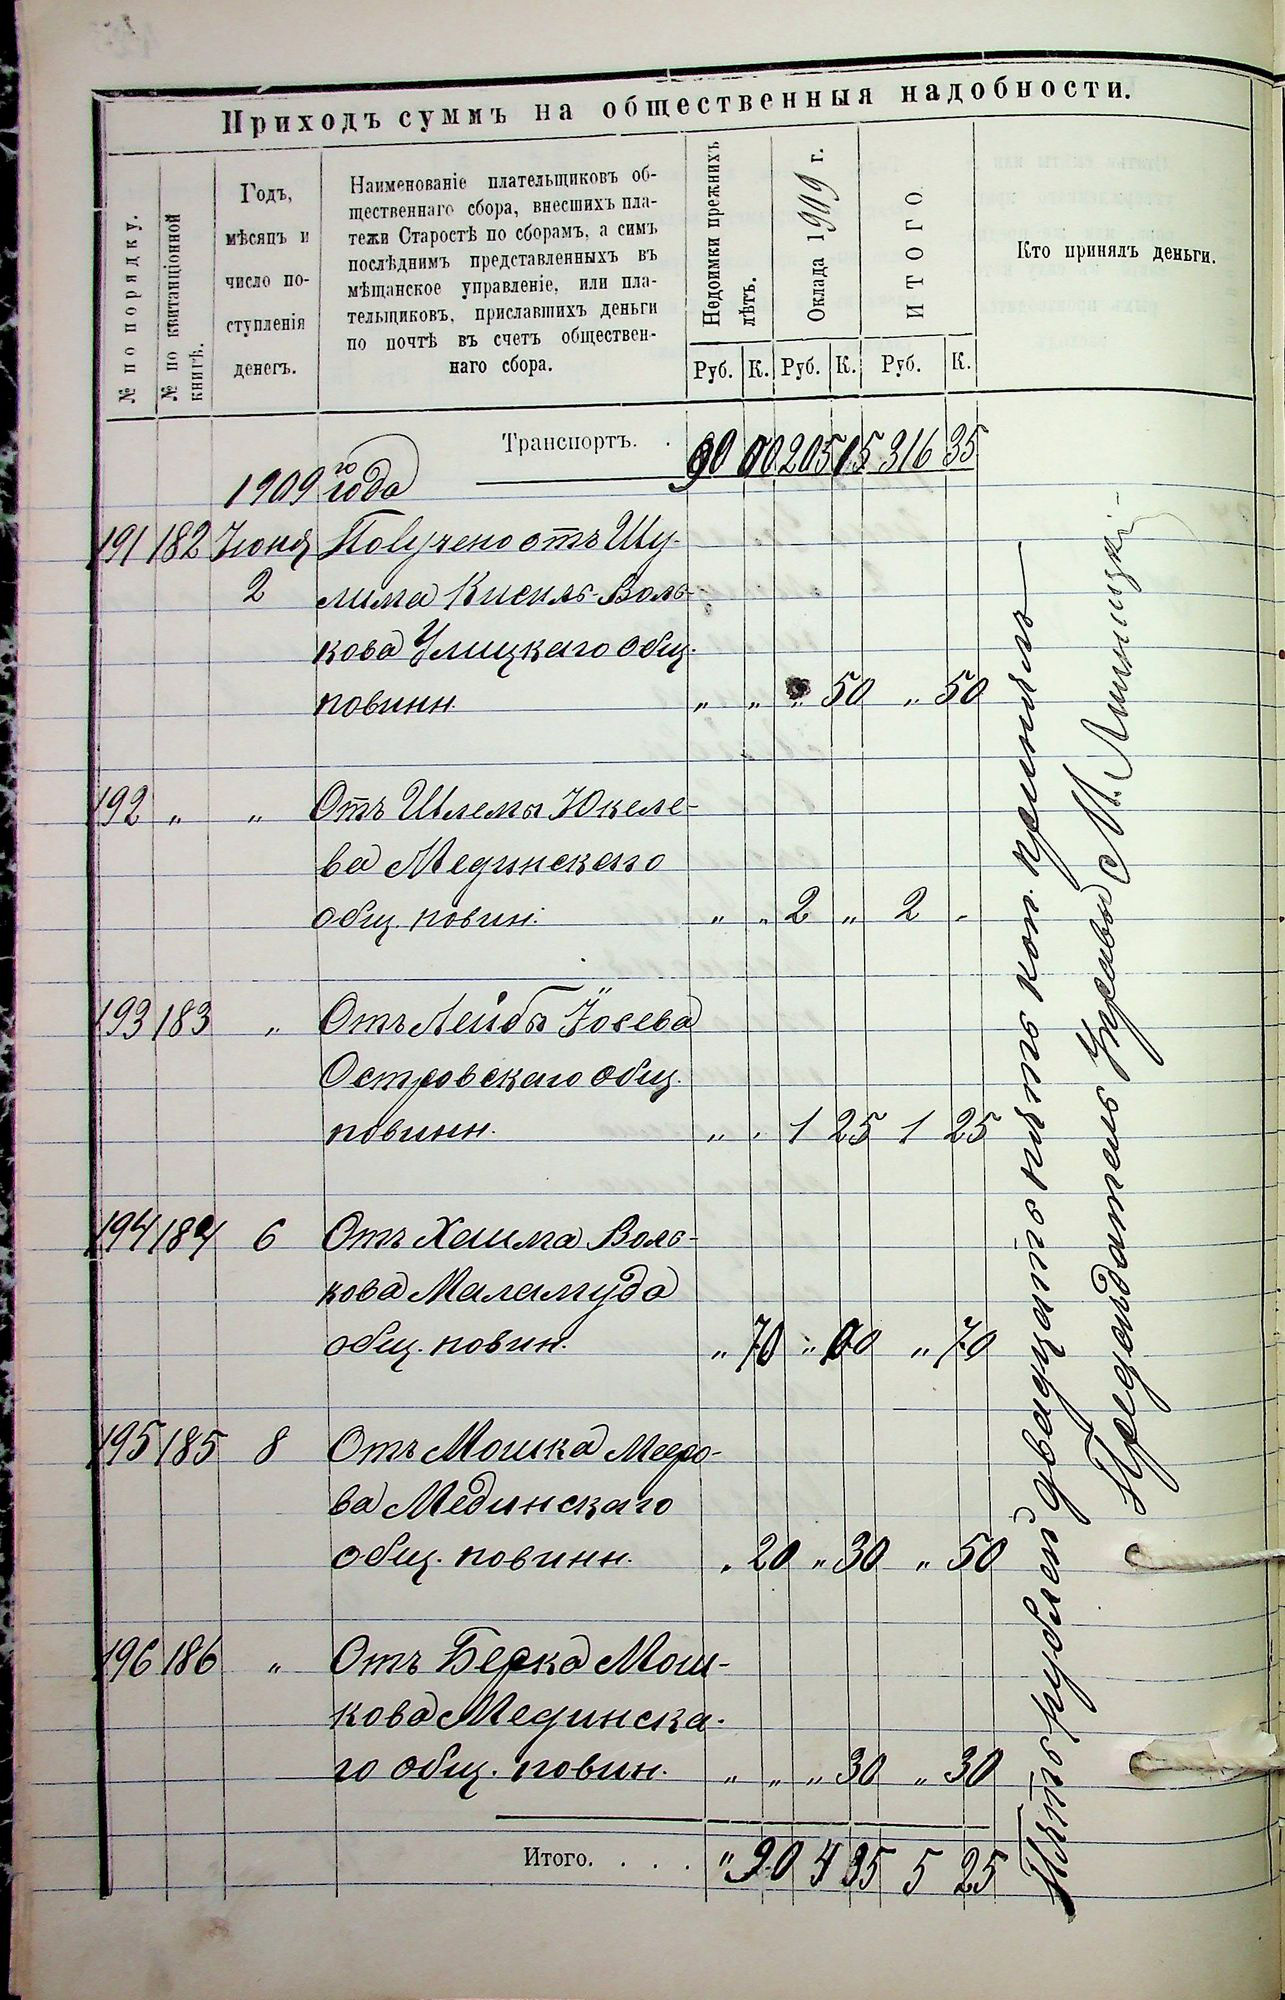 Приходъ суммъ на общественныя надобности.
№ по порядку.
№ по квитанціонной книгѣ.
Годъ,
мѣсяцъ и
число по-
ступленія
денегъ.
Наименованіе плательщиковъ об-
щественнаго сбора, внесшихъ пла-
тежи Старостѣ по сборамъ, а симъ
послѣднимъ представленныхъ въ
мѣщанское управленіе, или пла-
тельщиковъ, приславшихъ деньги
по почтѣ въ счетъ обществен-
наго сбора.
Недоимки прежнихъ лѣтъ.
Оклада 1909 г.
ИТОГО
Кто принялъ деньги.
Руб. К. Руб. К. Руб. К.
Транспортъ. . 90 00 205 15 316 35
1909 го года
191 182 Іюня Получено отъ Шу-
2 лима Кисиль-Воль-
кова Улицкаго общ.
повинн. „ „ „ 50 „ 50
192 „ „ Отъ Шлемы Юкеле-
ва Мединскаго
общ. повин. „ „ 2 „ 2 „
193 183 „ Отъ Лейбы Іосева
Островскаго общ.
повинн. „ „ 1 25 1 25
194 184 6 Отъ Хаима Воль-
кова Маламуда
общ. повин. „ 70 „ 00 „ 70
195 185 8 Отъ Мошка Меро-
ва Мединскаго
общ. повинн. „ 20 „ 30 „ 50
196 186 „ Отъ Берка Мош-
кова Мединска-
го общ. повин. „ „ „ 30 „ 30
Итого. . . . „ 90 4 35 5 25
Пять рублей двадцать пять коп. принялъ
Предсѣдатель Управы М.